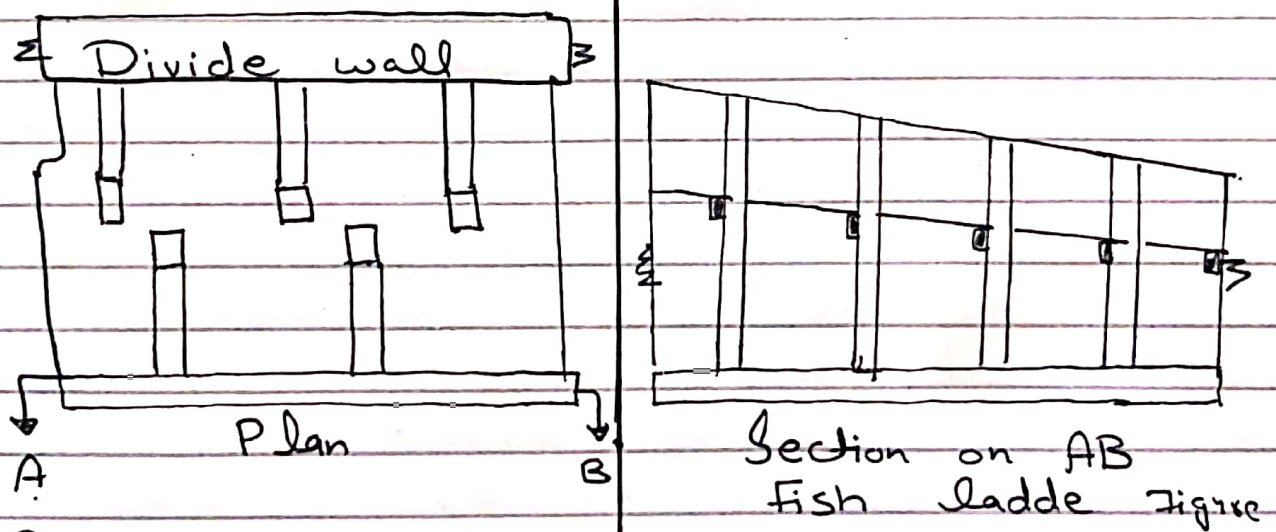 Divide wall
Plan
A
B
Section on AB
Fish ladde Figure